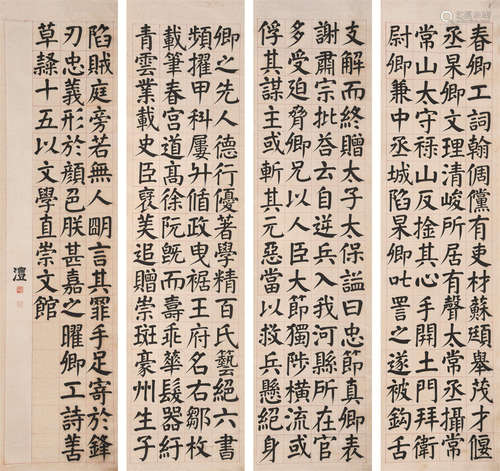 春卿工詞翰倜儻有吏材蘇頲舉茂才偃
丞杲卿文理清峻所居有聲太常丞攝常
常山太守禄山反捨其心手開土門拜衛
尉卿兼中丞城陷杲卿叱詈之遂被鈎舌
支解而終贈太子太保謚曰忠節真卿表
謝肅宗批荅云自逆兵入我河縣所在官
多受迫脅卿兄以人臣大節獨陟橫流或
俘其謀主或斬其元惡當以救兵懸絕身
卿之先人德行優著學精百氏藝絕六書
頻擢甲科屢升循政曳裾王府名右鄒枚
載筆春宮道髙徐阮旣而壽乖華髮器紆
青雲業載史臣裦美追贈崇班豪州生子
陷賊庭旁若無人朙言其罪手足寄於鋒
刃忠義形於顏色朕甚嘉之曜卿工詩善
草隸十五以文學直崇文館
澧